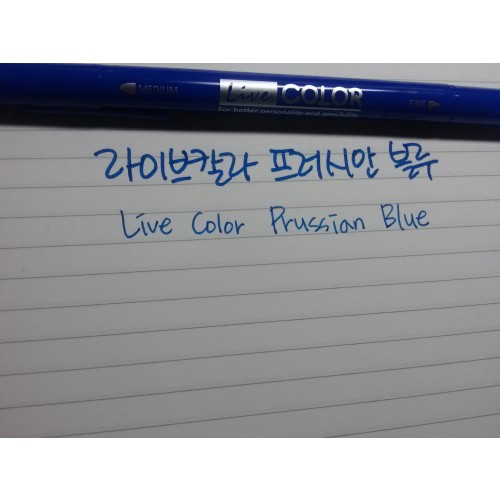 MEDIUM Live COLOR FINE
For better personality and sensibility
라이브칼라 프러시안 블루
Live Color Prussian Blue